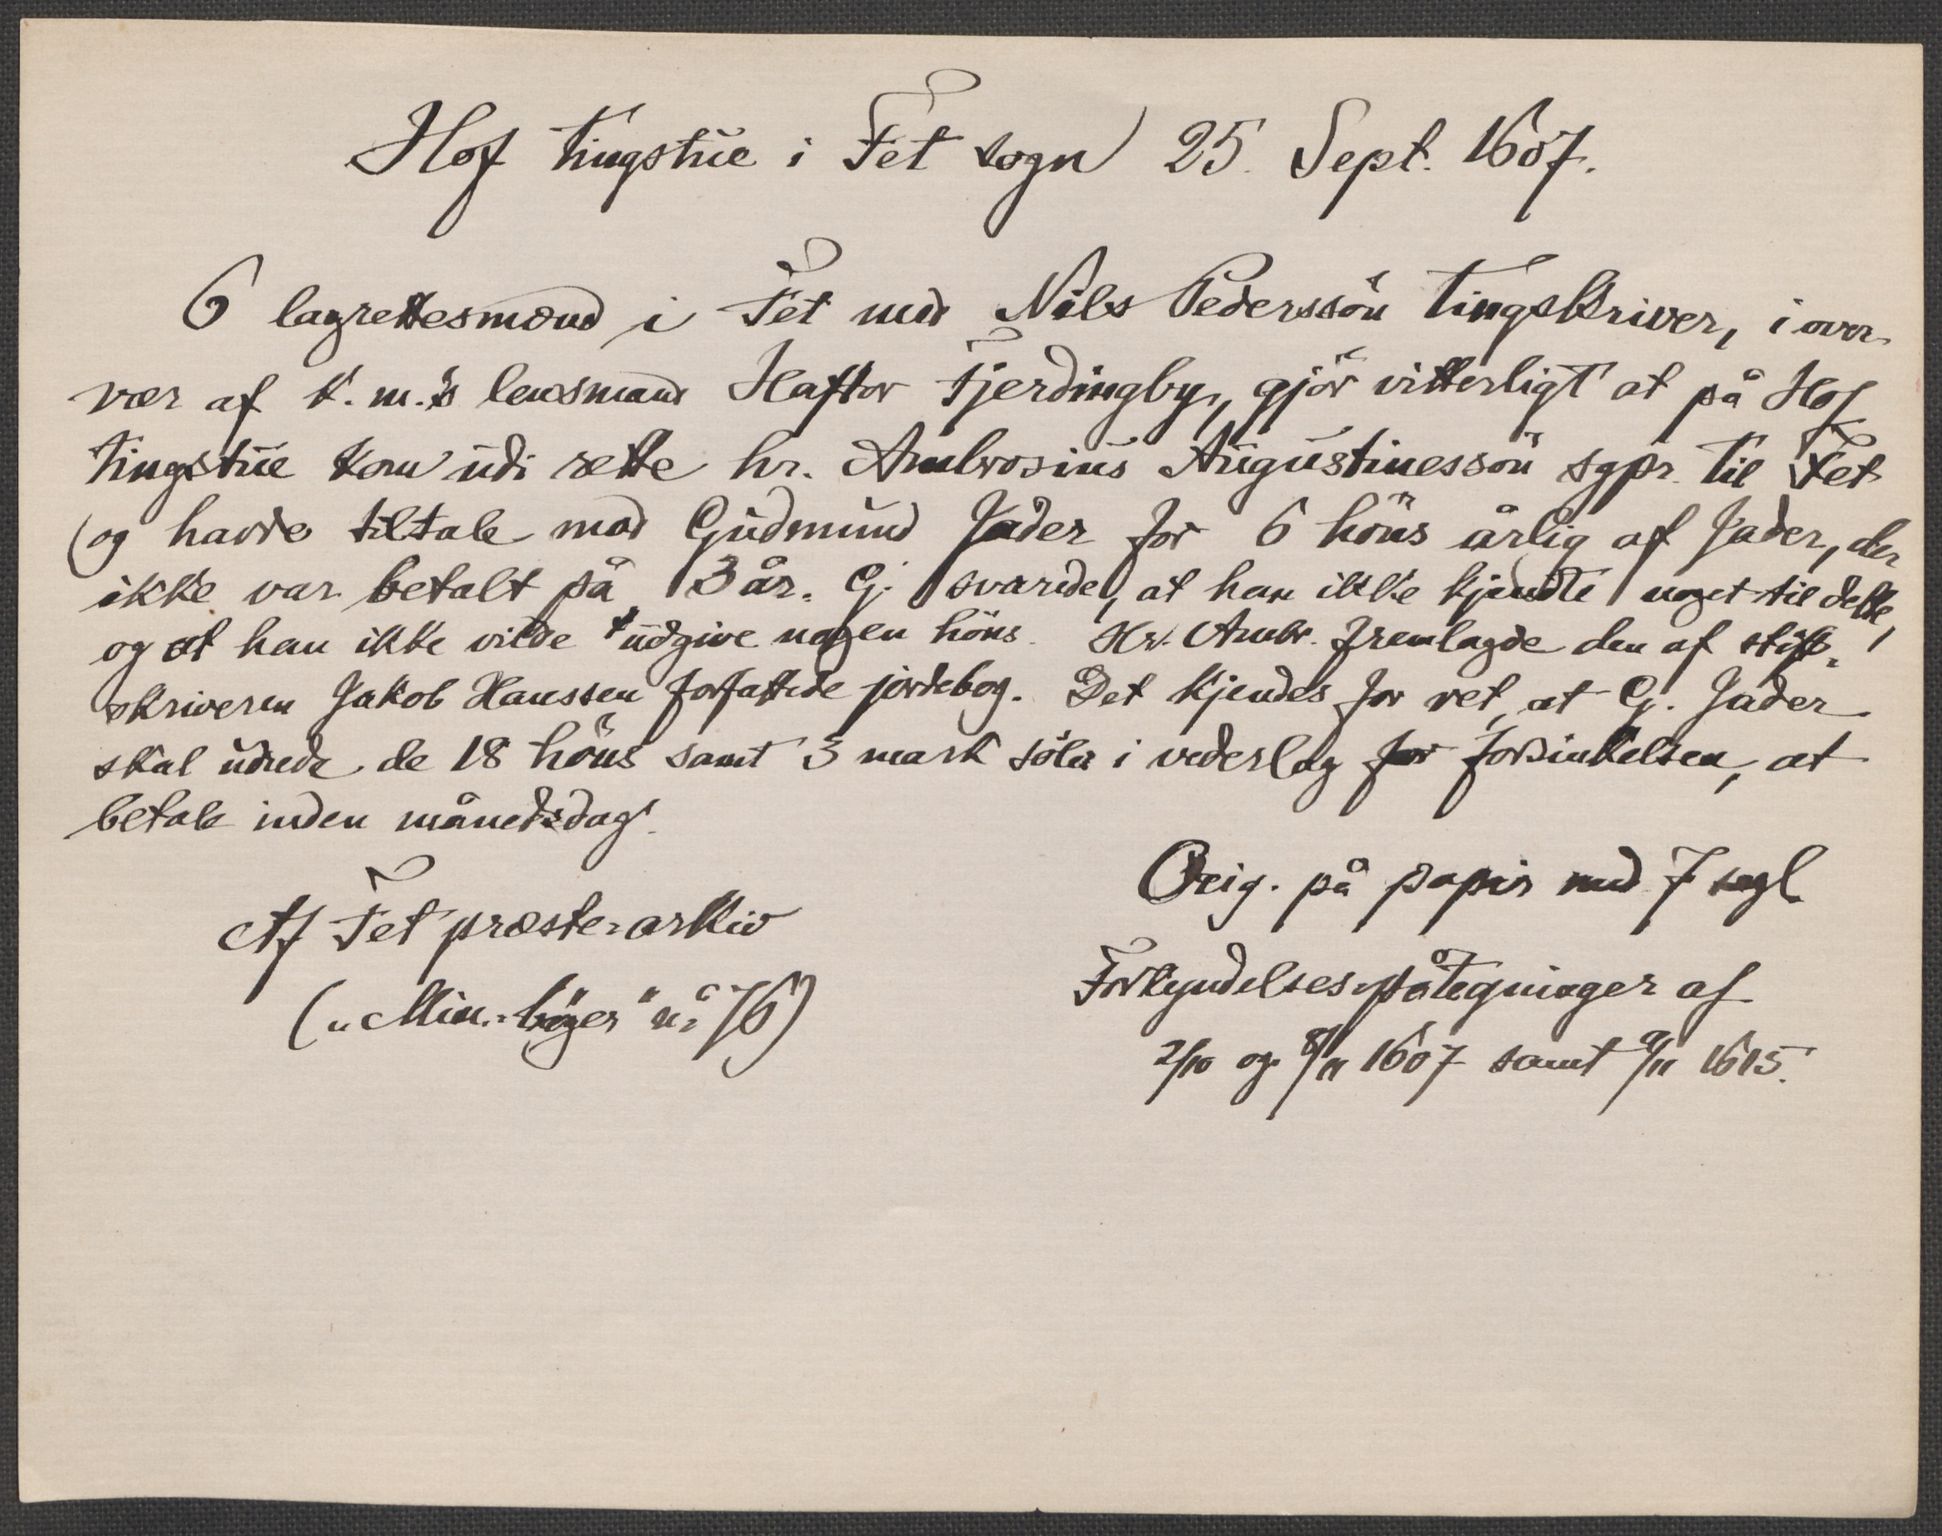 Hof tingstue i Fet sogn 25. Sept. 1607.
6 lagrettesmænd i Fet med Nils Pederssön tingskriver, i over-
vær af k. m.'s lensmand Haftor Fjerdingby, gjör vitterligt at på Hof
tingstue kom udi rette hr. Ambrosius Augustinessön sgpr. til Fet
og havde tiltale mod Gudmund Jader for 6 höns årlig af Jader, der
ikke var betalt på 3 år. G. svarede, at han ikke kjendte noget til dette,
og at han ikke vilde udgive nogen höns. Hr. Ambr. fremlagde den af stift-
skriveren Jakob Hanssen forfattede jordebog. Det kjendes for ret, at G. Jader
skal udrede de 18 höns samt 3 mark sölv i vederlag for forsinkelsen, at
betale inden månedsdag.
Orig. på papir med 7 segl.
Af Fet præste-arkiv
(„Min.-böger“ no 76)
Forkyndelses-påtegninger af
2/10 og 8/11 1607 samt 9/11 1615.